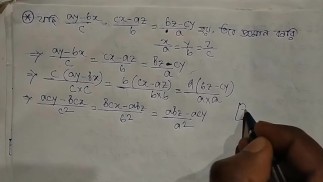 * যদি (ay-bx)/c = (cx-az)/b = (bz-cy)/a হয়, তবে প্রমাণ কর
x/a = y/b = z/c
⇒ (ay-bx)/c = (cx-az)/b = (bz-cy)/a
⇒ c(ay-bx)/(c×c) = b(cx-az)/(b×b) = a(bz-cy)/(a×a)
⇒ (acy-bcx)/c² = (bcx-abz)/b² = (abz-acy)/a²